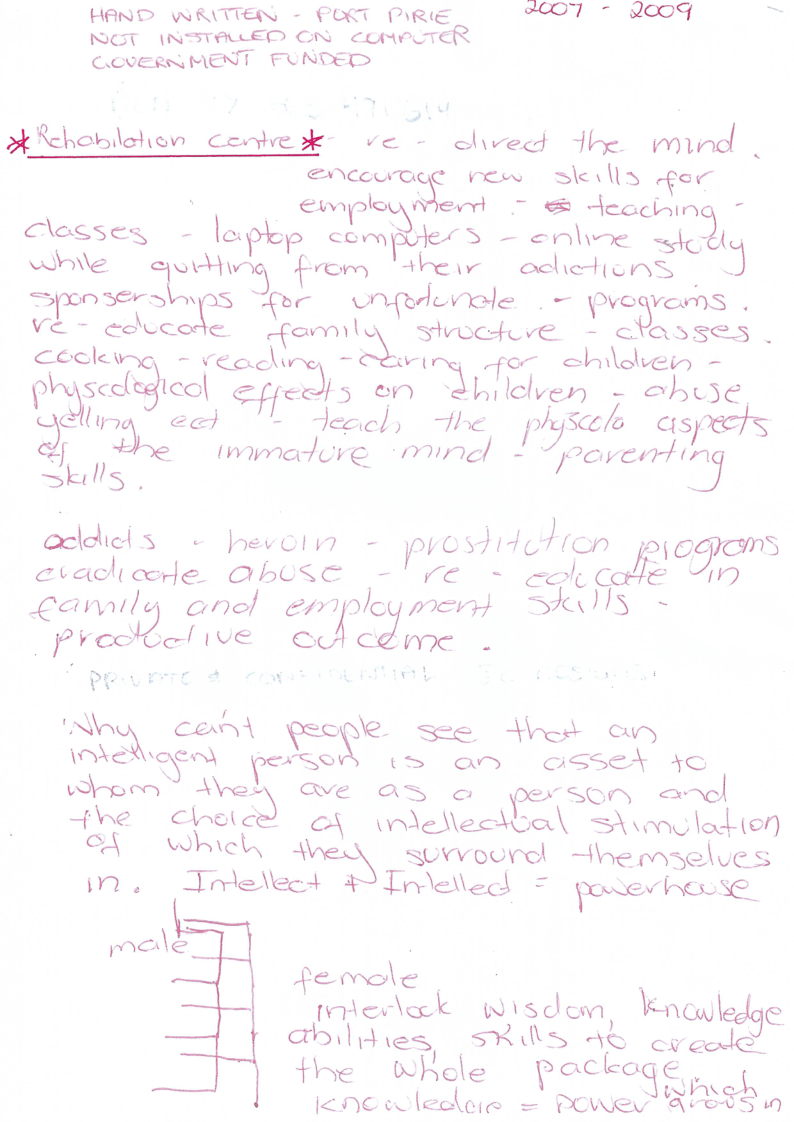 HAND WRITTEN - PORT PIRIE 2007 - 2009
NOT INSTALLED ON COMPUTER
GOVERNMENT FUNDED
* Rehabilation centre * - re - direct the mind .
encourage new skills for
employment - teaching -
classes - laptop computers - online study
while quitting from their adictions
sponserships for unfortunate . - programs .
re - educate family structure - classes .
cooking - reading - caring for children -
physcological effects on children - abuse
yelling ect - teach the physcolo aspects
of the immature mind - parenting
skills .
addicts - heroin - prostitution programs
eradicate abuse - re - educate in
family and employment skills -
productive outcome .
PRIVATE & CONFIDENTIAL
Why can't people see that an
intelligent person is an asset to
whom they are as a person and
the choice of intellectual stimulation
of which they surround themselves
in . Intellect + Intellect = powerhouse
male
female
interlock wisdom, knowledge
abilities, skills to create
the whole package
which
knowledge = power